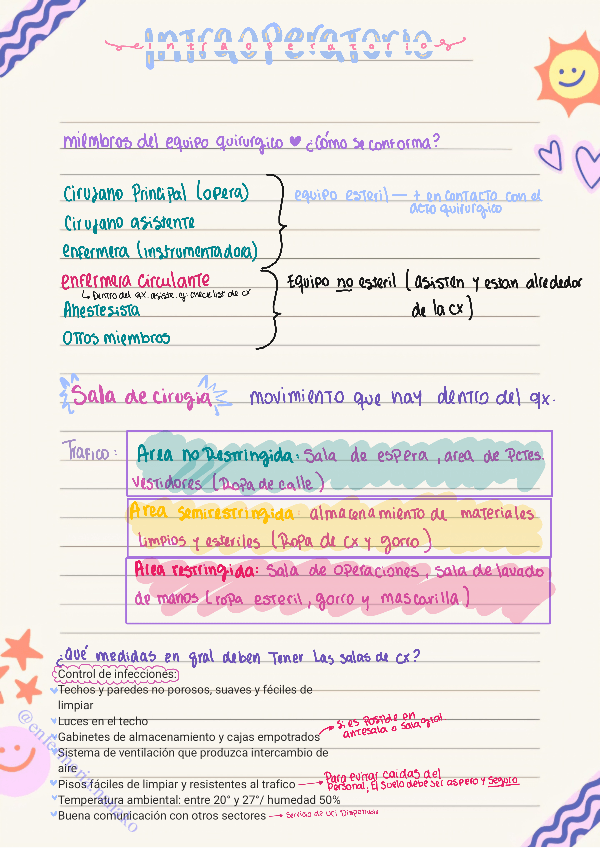 Intraoperatorio
intraoperatorio
miembros del equipo quirurgico ¿Cómo se conforma?
Cirujano Principal (opera)
equipo esteril — + en contacto con el
acto quirurgico
Cirujano asistente
enfermera (instrumentadora)
enfermera circulante
Equipo no esteril (asisten y estan alrededor
de la cx)
↳ Dentro del qx. asiste. ej: check list de cx
Anestesista
Otros miembros
Sala de cirugia movimiento que hay dentro del qx.
Trafico:
Area no Restringida: Sala de espera, area de Pctes.
vestidores (Ropa de calle)
Area semirestringida: almacenamiento de materiales
limpios y esteriles (Ropa de cx y gorro)
Area restringida: Sala de operaciones, sala de lavado
de manos (ropa esteril, gorro y mascarilla)
¿Qué medidas en gral deben Tener Las salas de cx?
Control de infecciones:
Techos y paredes no porosos, suaves y féciles de
limpiar
Luces en el techo
Gabinetes de almacenamiento y cajas empotrados
→ si es Posible en
antesala o sala gral.
Sistema de ventilación que produzca intercambio de
aire
Pisos fáciles de limpiar y resistentes al trafico
→ Para evitar caidas del
Personal, El suelo debe ser aspero y seguro
Temperatura ambiental: entre 20° y 27°/ humedad 50%
Buena comunicación con otros sectores → servicio de uci Disponible